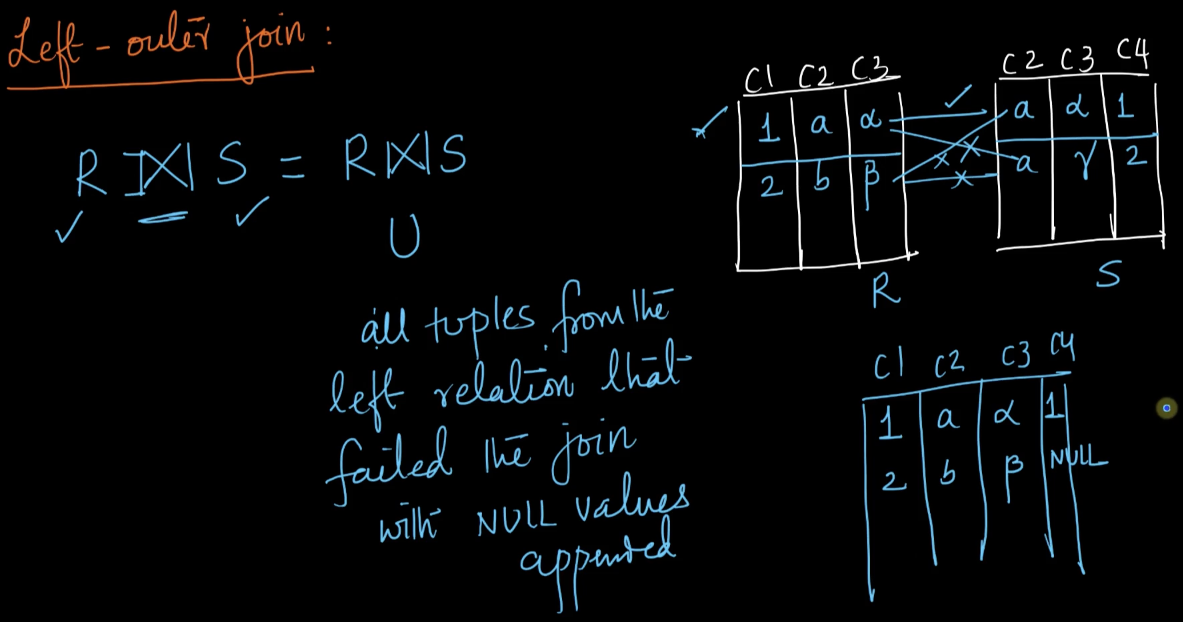 Left-outer join :
R ⟕ S = R ⋈ S
U
all tuples from the
left relation that
failed the join
with NULL values
appended
C1 C2 C3
1 a α
2 b β
R
C2 C3 C4
a α 1
a γ 2
S
C1 C2 C3 C4
1 a α 1
2 b β NULL